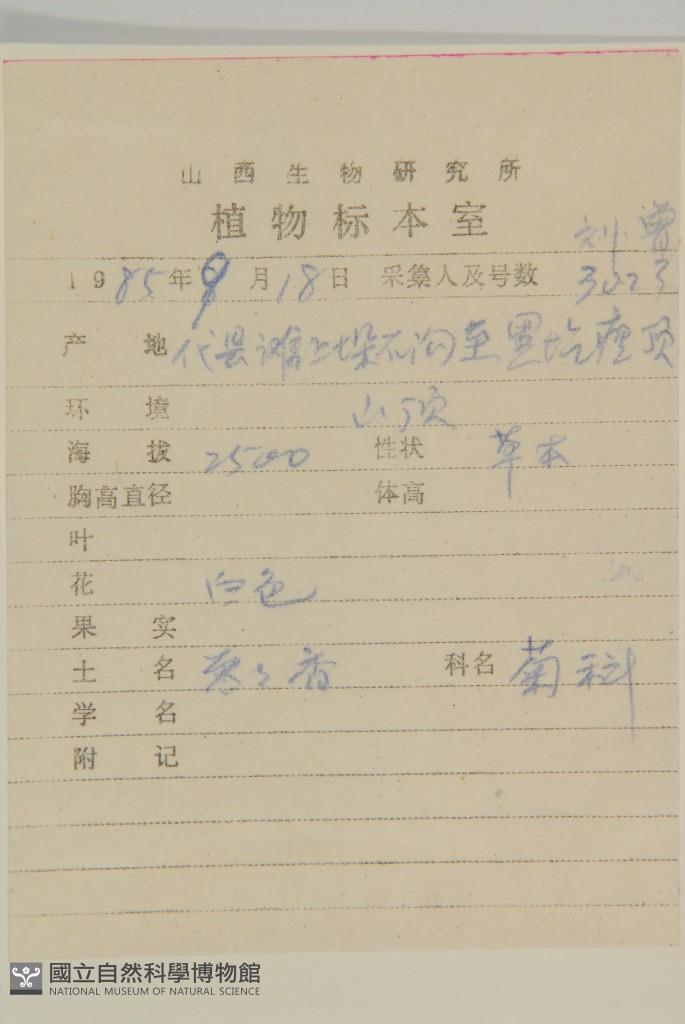 山西生物研究所
植物标本室
刘 曾
1985年9月18日 采集人及号数 3023
产地 代县滩上垛石沟至
环境 山顶
海拔 2500 性状 草本
胸高直径 体高
叶
花 白色
果实
土名 香 科名 菊科
学名
附记
國立自然科學博物館
NATIONAL MUSEUM OF NATURAL SCIENCE